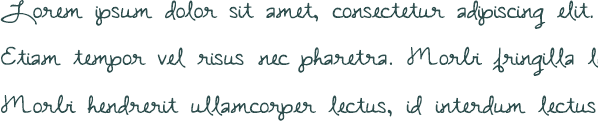 Lorem ipsum dolor sit amet, consectetur adipiscing elit.
Etiam tempor vel risus nec pharetra. Morbi fringilla l
Morbi hendrerit ullamcorper lectus, id interdum lectus